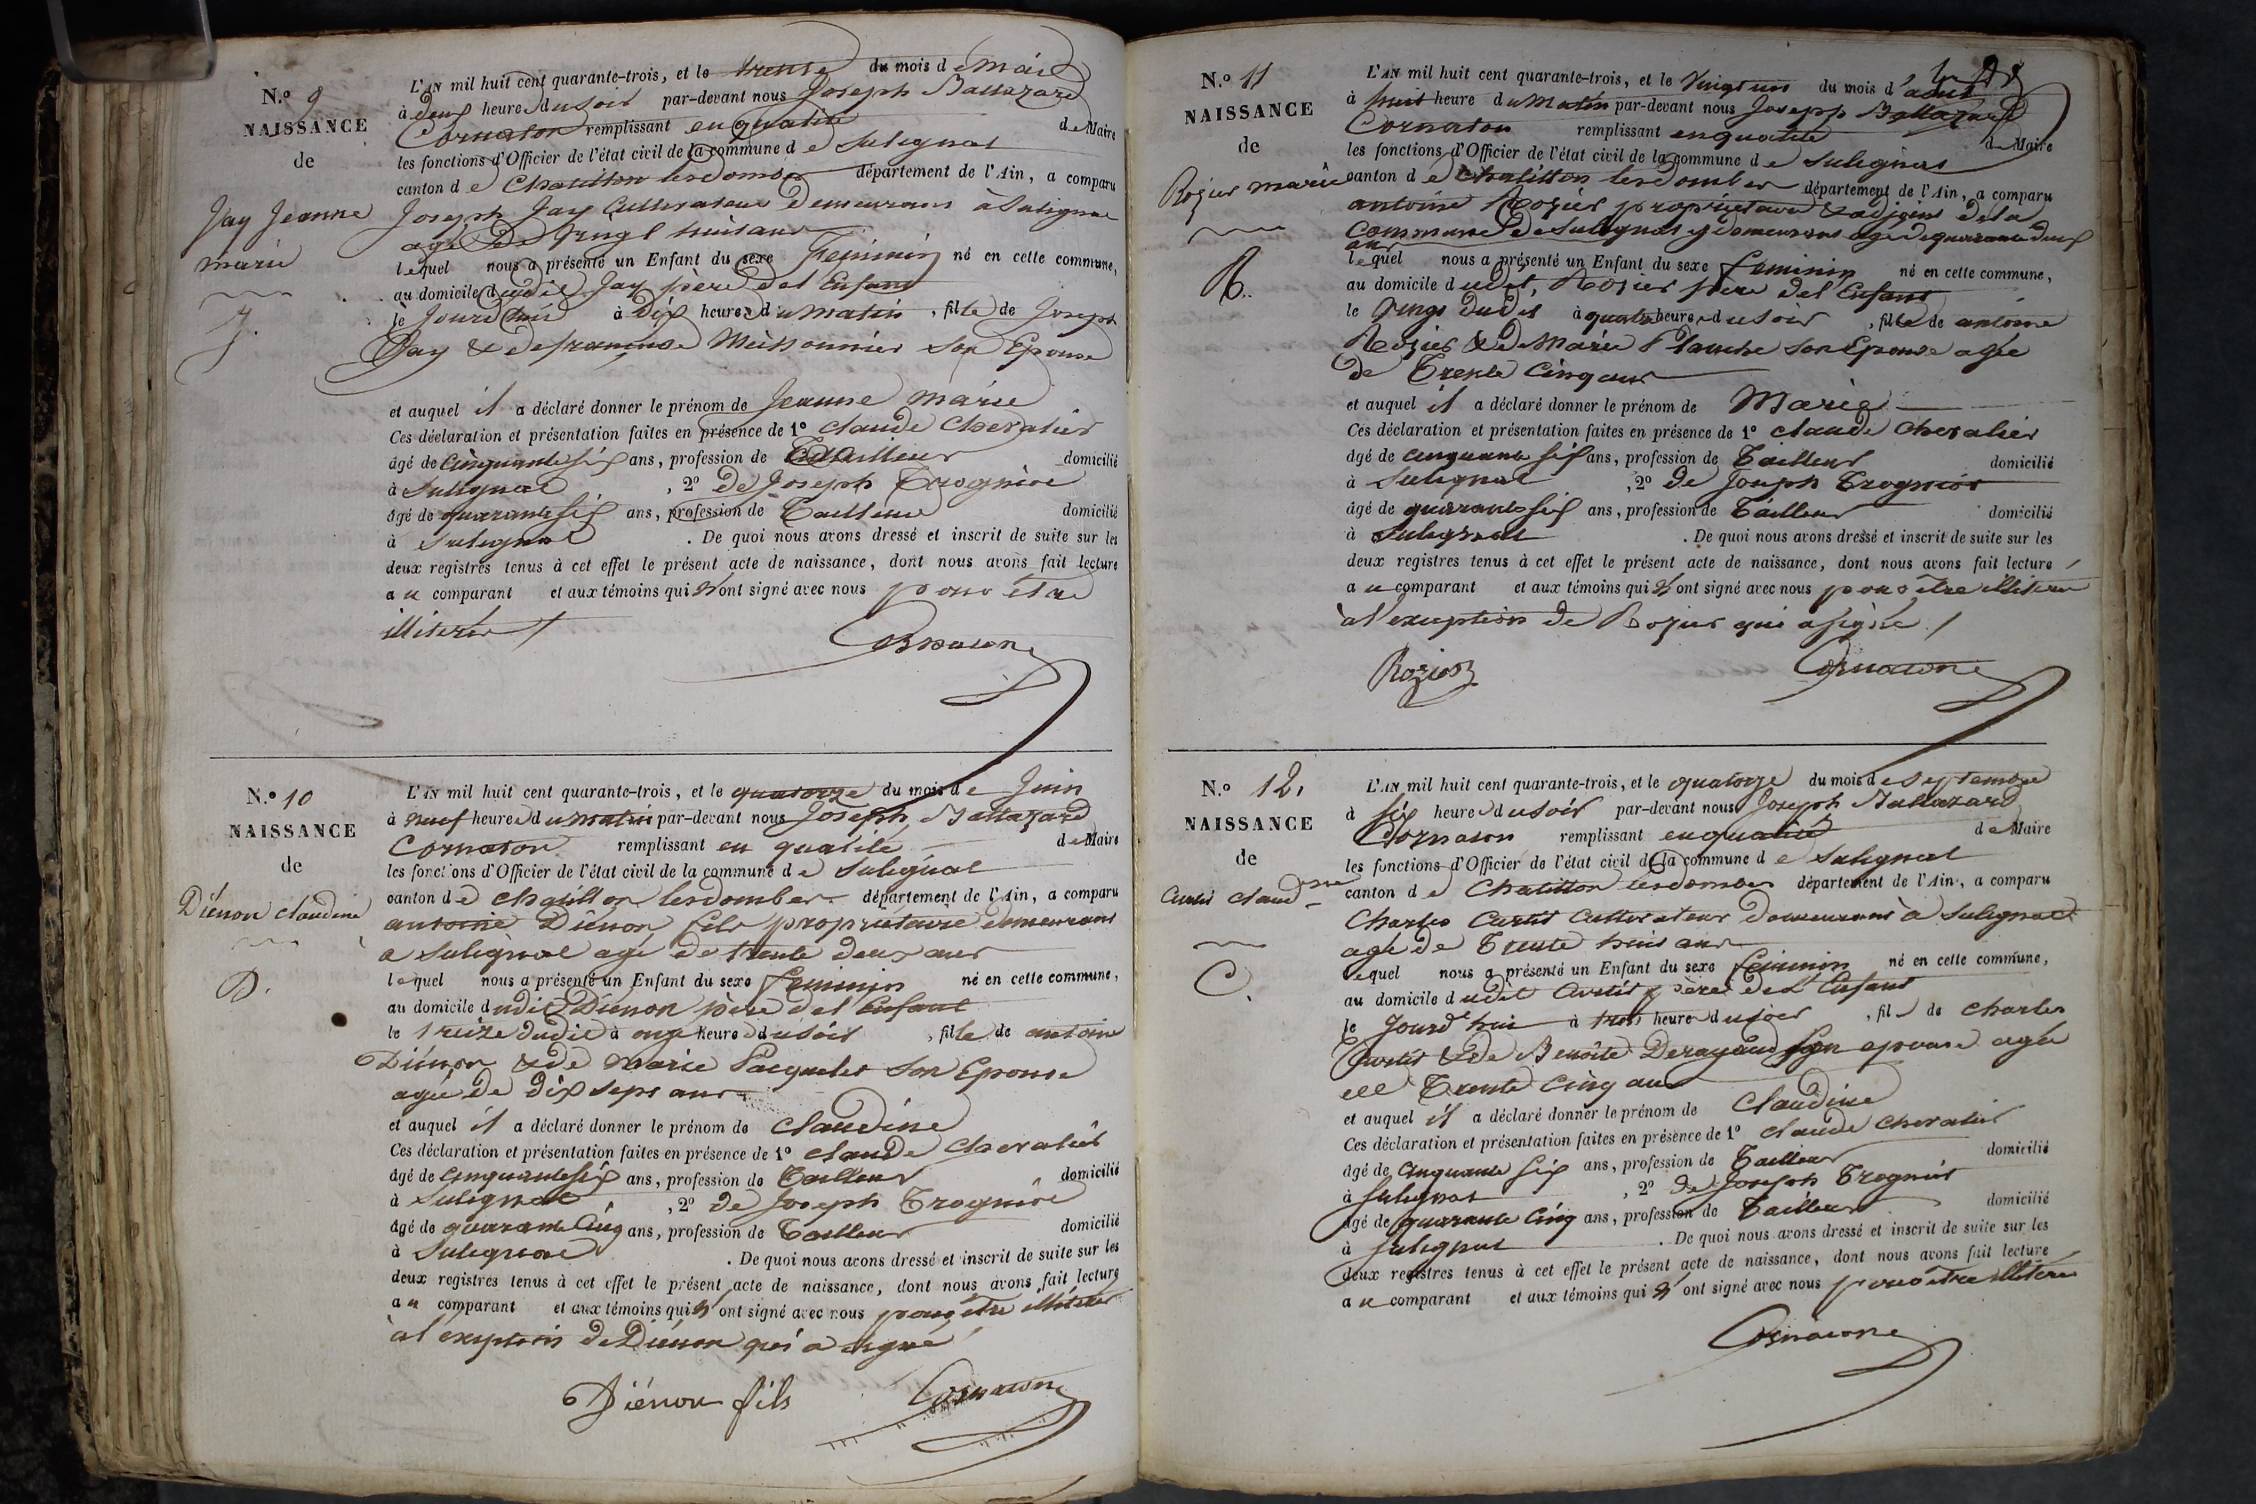 N.o 9
NAISSANCE
de
Jay Jeanne
marie
J.
L'AN mil huit cent quarante-trois, et le trente du mois de Mai
à deux heure du soir par-devant nous Joseph Baltazard
Cornaton remplissant en qualité de Maire
les fonctions d'Officier de l'état civil de la commune de Sulignat
canton de Chatillon lesdombes département de l'Ain, a comparu
Joseph Jay Cultivateur demeurant à Sulignat
agé de vingt huit ans
lequel nous a présenté un Enfant du sexe Feminin né en cette commune,
au domicile dudit Jay père del Enfant
le Jourd'hui à dix heures du matin, fille de Joseph
Jay & de françoise Meissonnier son Epouse
et auquel il a déclaré donner le prénom de Jeanne Marie
Ces déclaration et présentation faites en présence de 1º Claude Chevalier
âgé de cinquante six ans, profession de Tailleur domicilié
à Sulignat, 2º de Joseph Trognier
âgé de quarante six ans, profession de Tailleur domicilié
à Sulignat. De quoi nous avons dressé et inscrit de suite sur les
deux registres tenus à cet effet le présent acte de naissance, dont nous avons fait lecture
au comparant et aux témoins qui n'ont signé avec nous pour être
illiterés
Cornaton
N.o 10
NAISSANCE
de
Diénon claudine
D.
L'AN mil huit cent quarante-trois, et le quatorze du mois de Juin
à neuf heure du matin par-devant nous Joseph Baltazard
Cornaton remplissant en qualité de Maire
les fonctions d'Officier de l'état civil de la commune de Sulignat
canton de Chatillon lesdombes département de l'Ain, a comparu
antoine Diénon fils propriétaire demeurant
a Sulignat agé de trente deux ans
lequel nous a présenté un Enfant du sexe feminin né en cette commune,
au domicile dudit Diénon père del Enfant
le treize dudit à onze heure du soir, fille de antoine
Diénon & de Marie Pacquelet son Epouse
agée de dix sept ans
et auquel il a déclaré donner le prénom de Claudine
Ces déclaration et présentation faites en présence de 1º claude Chevalier
âgé de cinquante six ans, profession de Tailleur domicilié
à Sulignat, 2º de Joseph Trognier
âgé de quarante cinq ans, profession de Tailleur domicilié
à Sulignat. De quoi nous avons dressé et inscrit de suite sur les
deux registres tenus à cet effet le présent acte de naissance, dont nous avons fait lecture
au comparant et aux témoins qui n'ont signé avec nous pour être illiterés
à l'exeption de Diénon qui a signé
Diénon fils Cornaton
N.o 11
NAISSANCE
de
Rozier marie
R.
L'AN mil huit cent quarante-trois, et le vingt un du mois d'aout
à huit heure du Matin par-devant nous Joseph Baltazard
Cornaton remplissant en qualité de Maire
les fonctions d'Officier de l'état civil de la commune de Sulignat
canton de Chatillon lesdombes département de l'Ain, a comparu
antoine Rozier propriétaire & adjoint de la
Commune de Sulignat y demeurant agé de quarante deux
ans
lequel nous a présenté un Enfant du sexe feminin né en cette commune,
au domicile dudit, Rozier père del Enfant
le vingt dudit à quatre heure du soir, fille de antoine
Rozier & de Marie Planche son Epouse agée
de Trente Cinq ans
et auquel il a déclaré donner le prénom de Marie
Ces déclaration et présentation faites en présence de 1º claude Chevalier
âgé de cinquante six ans, profession de Tailleur domicilié
à Sulignat, 2º de Joseph Trognier
âgé de quarante six ans, profession de Tailleur domicilié
à Sulignat. De quoi nous avons dressé et inscrit de suite sur les
deux registres tenus à cet effet le présent acte de naissance, dont nous avons fait lecture
au comparant et aux témoins qui n'ont signé avec nous pour être illiterés
à l'exception de Rozier qui a signé
Rozier Cornaton
N.o 12.
NAISSANCE
de
Curtit claudine
C.
L'AN mil huit cent quarante-trois, et le quatorze du mois de Septembre
à six heure du soir par-devant nous Joseph Baltazard
Cornaton remplissant en qualité de Maire
les fonctions d'Officier de l'état civil de la commune de Sulignat
canton de Chatillon lesdombes département de l'Ain, a comparu
Charles Curtit Cultivateur demeurant à Sulignat
agé de Trente huit ans
lequel nous a présenté un Enfant du sexe feminin né en cette commune,
au domicile dudit Curtit père del Enfant
le Jourd'hui à trois heure du soir, fil de Charles
Curtit & de Benoîte Derayaud son epouse agée
de Trente cinq ans
et auquel il a déclaré donner le prénom de Claudine
Ces déclaration et présentation faites en présence de 1º claude Chevalier
âgé de cinquante six ans, profession de Tailleur domicilié
à Sulignat, 2º de Joseph Trognier
âgé de quarante cinq ans, profession de Tailleur domicilié
à Sulignat. De quoi nous avons dressé et inscrit de suite sur les
deux registres tenus à cet effet le présent acte de naissance, dont nous avons fait lecture
au comparant et aux témoins qui n'ont signé avec nous pour être illiterés
Cornaton